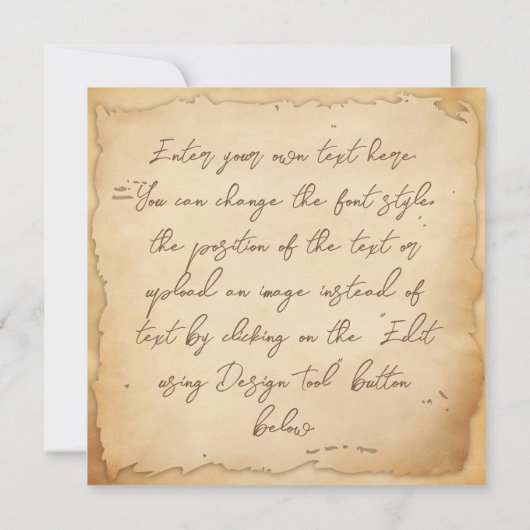 Enter your own text here.
You can change the font style,
the position of the text or
upload an image instead of
text by clicking on the "Edit
using Design Tool" button
below